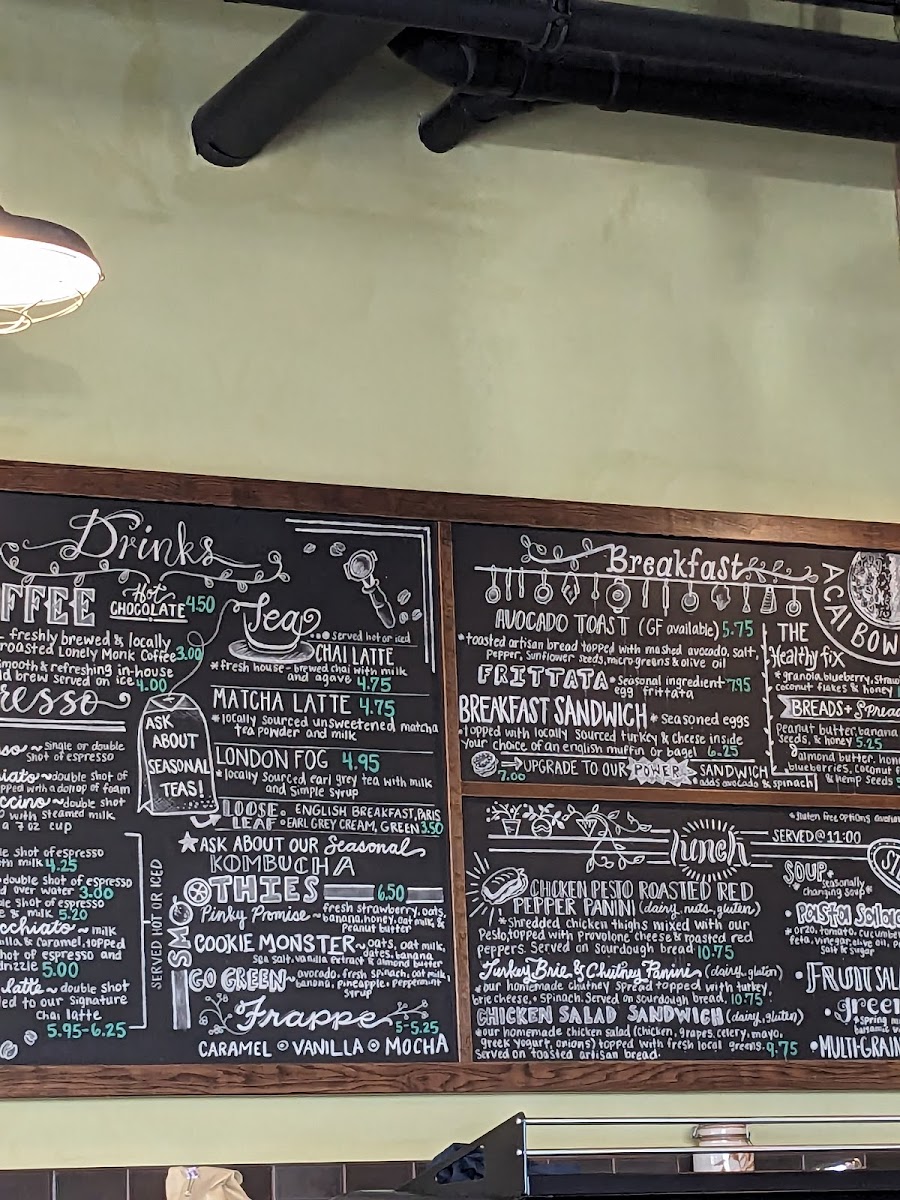 Drinks
Hot
CHOCOLATE 4.50
freshly brewed & locally
roasted Lonely Monk Coffee 3.00
smooth & refreshing in-house
brew served on ice 4.00
single or double
shot of espresso
double shot of
topped with a dollop of foam
double shot
with steamed milk
a 7 oz cup
shot of espresso
with milk 4.25
double shot of espresso
over water 3.00
shot of espresso
& milk 5.20
milk
& caramel, topped
shot of espresso and
drizzle 5.00
latte ~ double shot
to our signature
chai latte
5.95-6.25
SERVED HOT OR ICED
ASK
ABOUT
SEASONAL
TEAS!
Tea
served hot or iced
CHAI LATTE
*fresh house-brewed chai with milk
and agave 4.75
MATCHA LATTE 4.75
*locally sourced unsweetened matcha
tea powder and milk
LONDON FOG 4.95
*locally sourced earl grey tea with milk
and simple syrup
LOOSE LEAF
ENGLISH BREAKFAST, PARIS
EARL GREY CREAM, GREEN 3.50
ASK ABOUT OUR Seasonal
KOMBUCHA
SMOOTHIES 6.50
Pinky Promise ~ fresh strawberry, oats,
banana, honey, oat milk &
peanut butter
COOKIE MONSTER ~ oats, oat milk,
dates, banana
sea salt, vanilla extract & almond butter
GO GREEN ~ avocado, fresh spinach, oat milk,
banana, pineapple, peppermint
syrup
Frappe 5-5.25
CARAMEL VANILLA MOCHA
Breakfast
AVOCADO TOAST (GF available) 5.75
*toasted artisan bread topped with mashed avocado, salt,
pepper, sunflower seeds, microgreens & olive oil
FRITTATA * seasonal ingredient
egg frittata 7.95
BREAKFAST SANDWICH * seasoned eggs
*topped with locally sourced turkey & cheese inside
your choice of an english muffin or bagel 6.25
7.00 UPGRADE TO OUR POWER SANDWICH
*adds avocado & spinach
ACAI BOW
THE
Healthy fix
*granola, blueberry,
coconut flakes & honey
BREADS +
peanut butter, banana
seeds, & honey 5.25
almond butter,
blueberries, coconut
& hemp seeds
lunch
SERVED @ 11:00
CHICKEN PESTO ROASTED RED
PEPPER PANINI (dairy, nuts, gluten)
*Shredded chicken thighs mixed with our
Pesto, topped with Provolone cheese & roasted red
peppers. Served on sourdough bread 10.75
Turkey Brie & Chutney Panini (dairy, gluten)
*our homemade chutney spread topped with turkey,
brie cheese, & spinach. Served on sourdough bread. 10.75
CHICKEN SALAD SANDWICH (dairy, gluten)
*our homemade chicken salad (chicken, grapes, celery, mayo,
greek yogurt, onions) topped with fresh local greens. 9.75
served on toasted artisan bread.
*gluten free options
SOUP
*seasonally
changing soup*
Pasta Salad
*orzo, tomato, cucumber
feta, vinegar, olive oil,
salt & sugar
FRUIT
MULTI-GRAIN